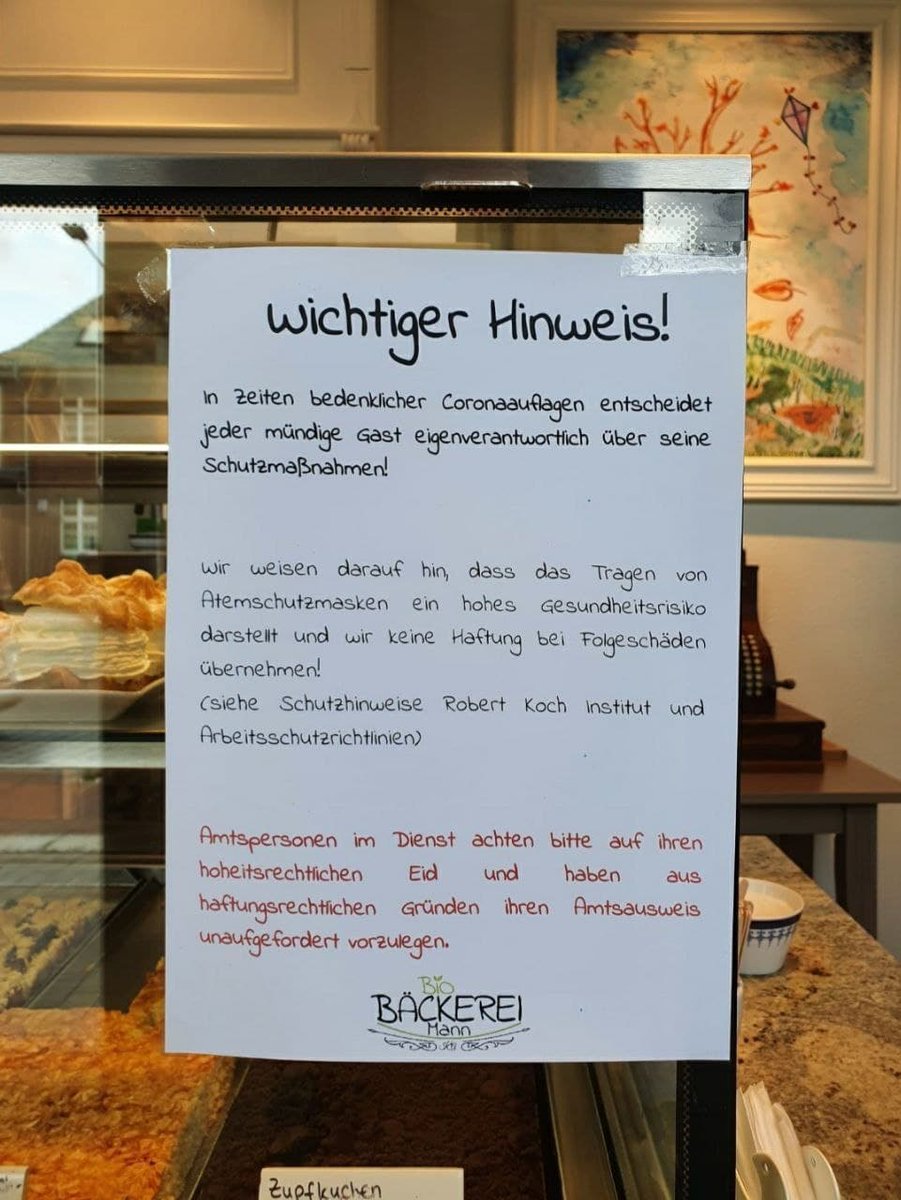 Wichtiger Hinweis!
In Zeiten bedenklicher Coronaauflagen entscheidet
jeder mündige Gast eigenverantwortlich über seine
Schutzmaßnahmen!
Wir weisen darauf hin, dass das Tragen von
Atemschutzmasken ein hohes Gesundheitsrisiko
darstellt und wir keine Haftung bei Folgeschäden
übernehmen!
(siehe Schutzhinweise Robert Koch Institut und
Arbeitsschutzrichtlinien)
Amtspersonen im Dienst achten bitte auf ihren
hoheitsrechtlichen Eid und haben aus
haftungsrechtlichen Gründen ihren Amtsausweis
unaufgefordert vorzulegen.
Bio
BÄCKEREI
Mann
Zupfkuchen